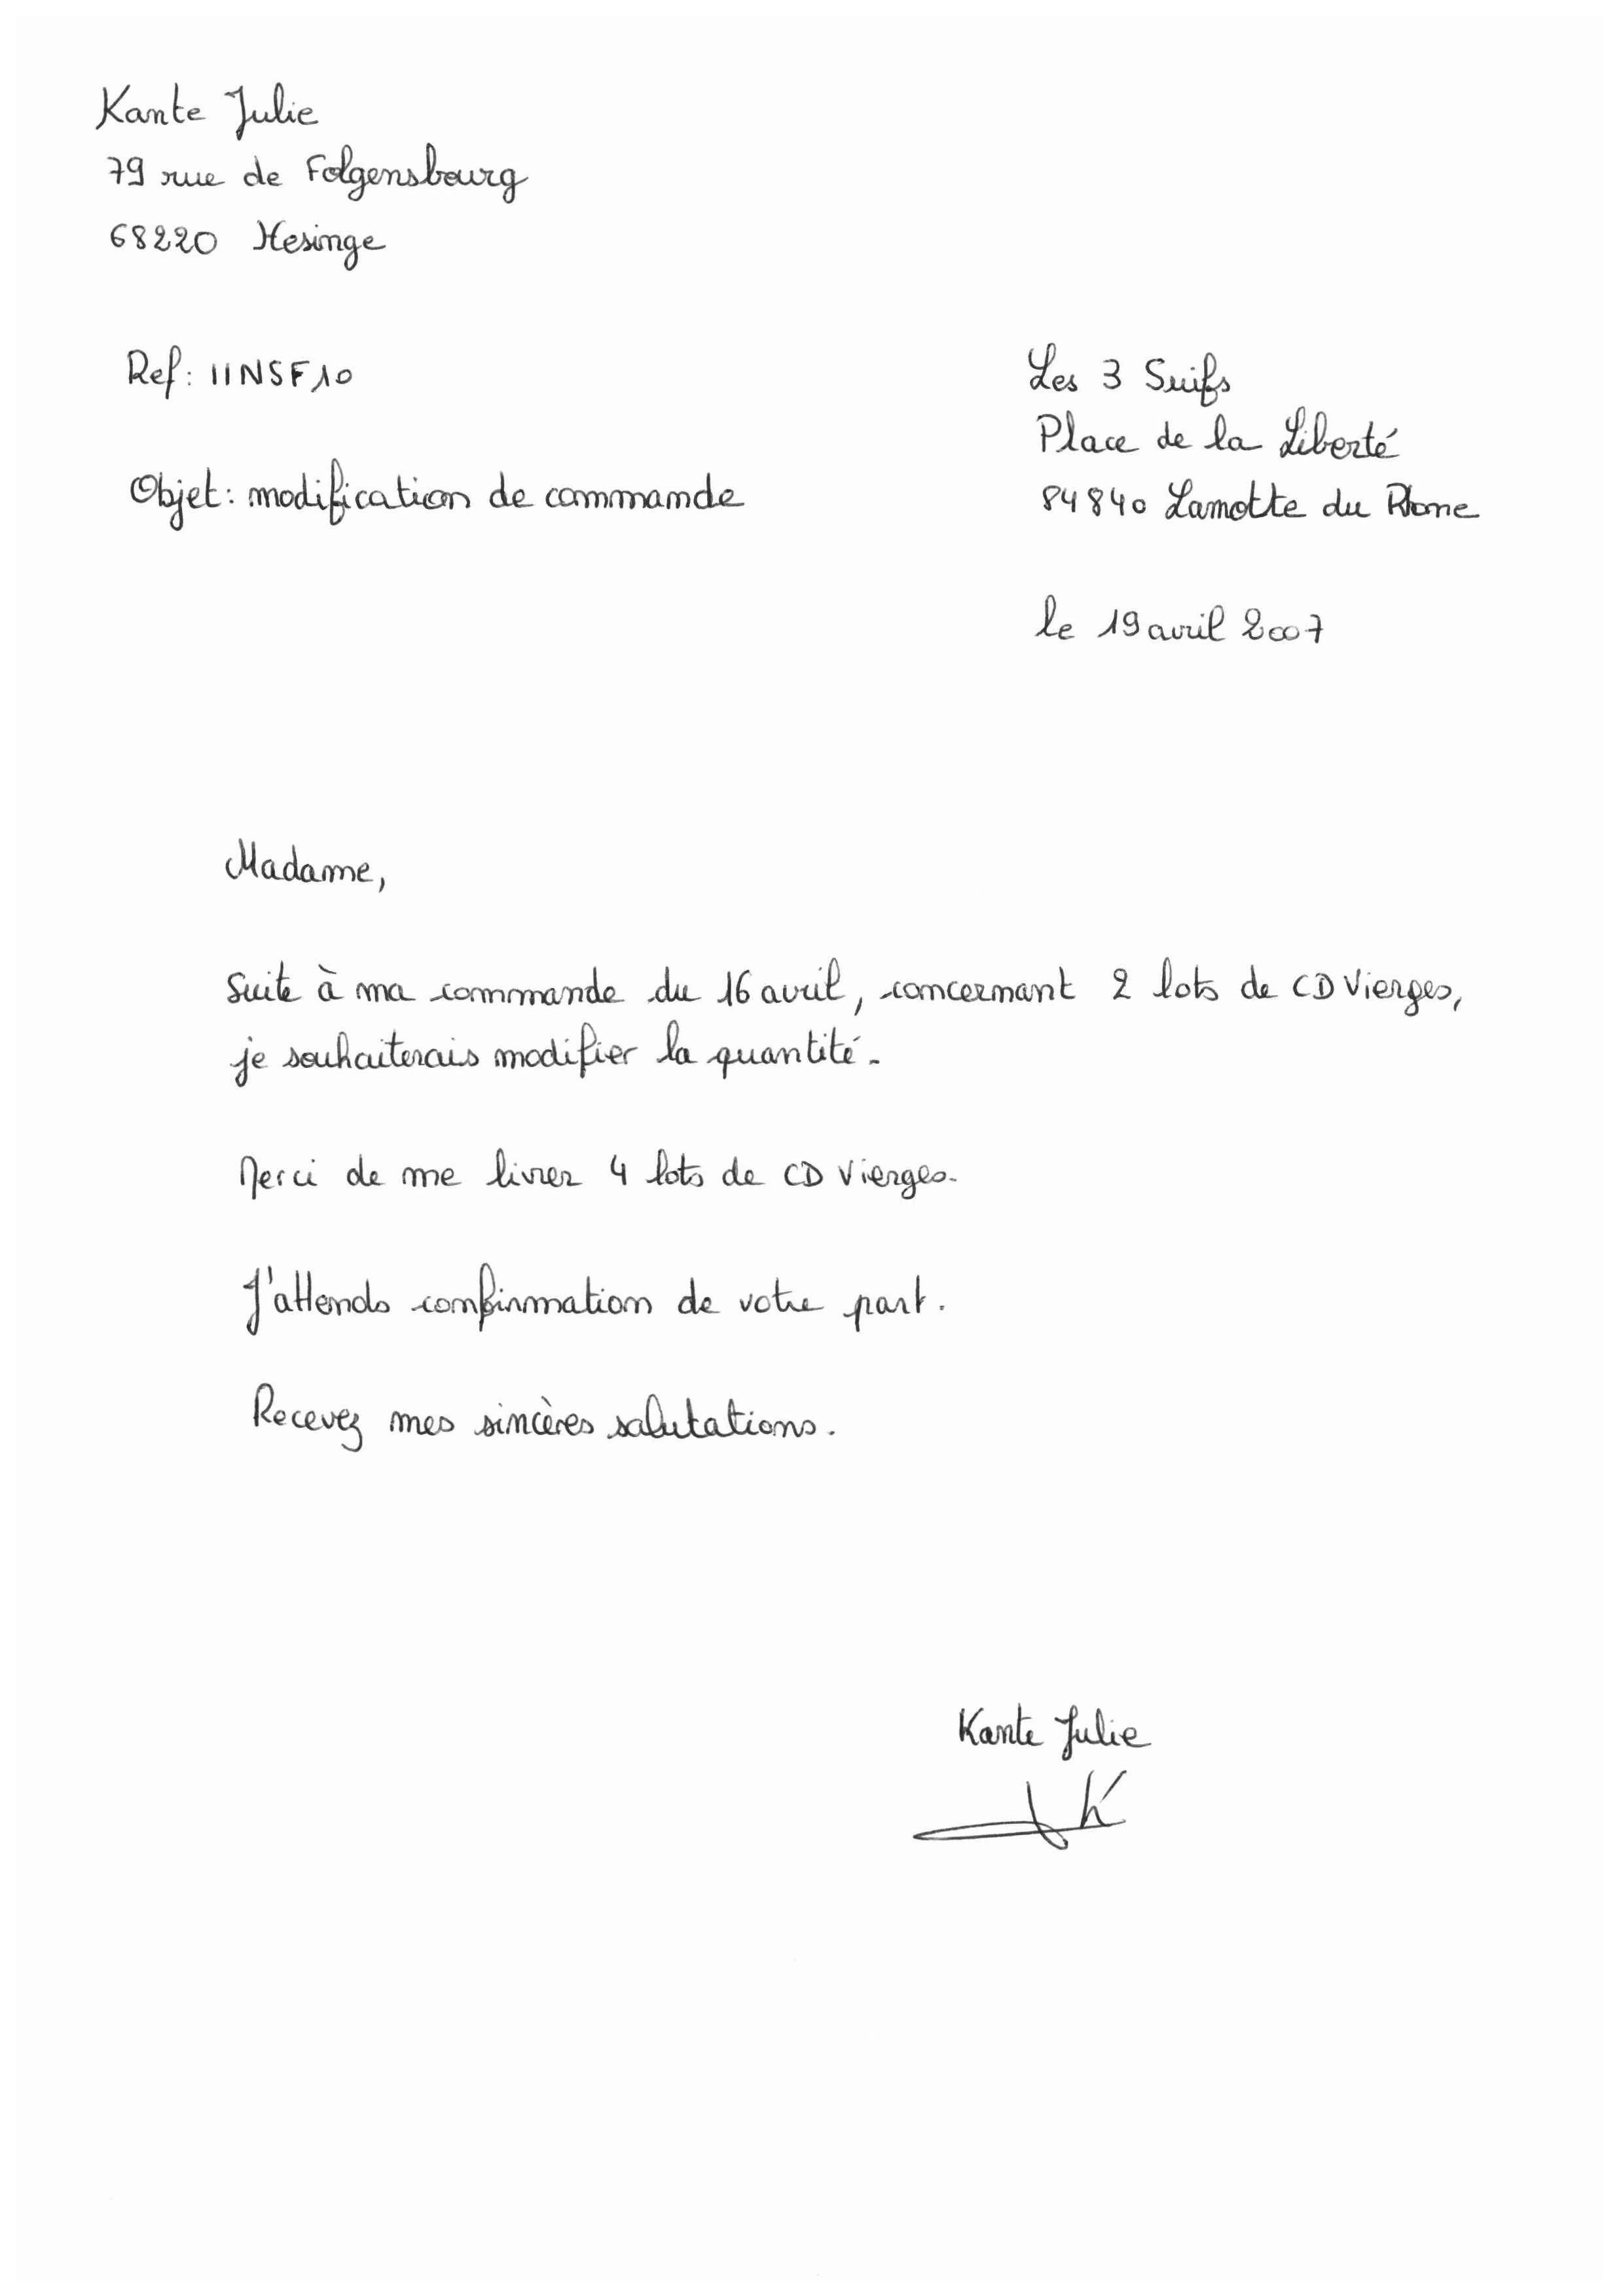 Kante Julie
79 rue de Folgensbourg
68220 Hesinge
Ref: IINSF10
Objet: modification de commande
Les 3 Suifs
Place de la Liberté
84840 Lamotte du Rhone
le 19 avril 2007
Madame,
Suite à ma commande du 16 avril, concernant 2 lots de CD Vierges,
je souhaiterais modifier la quantité.
Merci de me livrer 4 lots de CD Vierges.
J'attends confirmation de votre part.
Recevez mes sincères salutations.
Kante Julie
JK